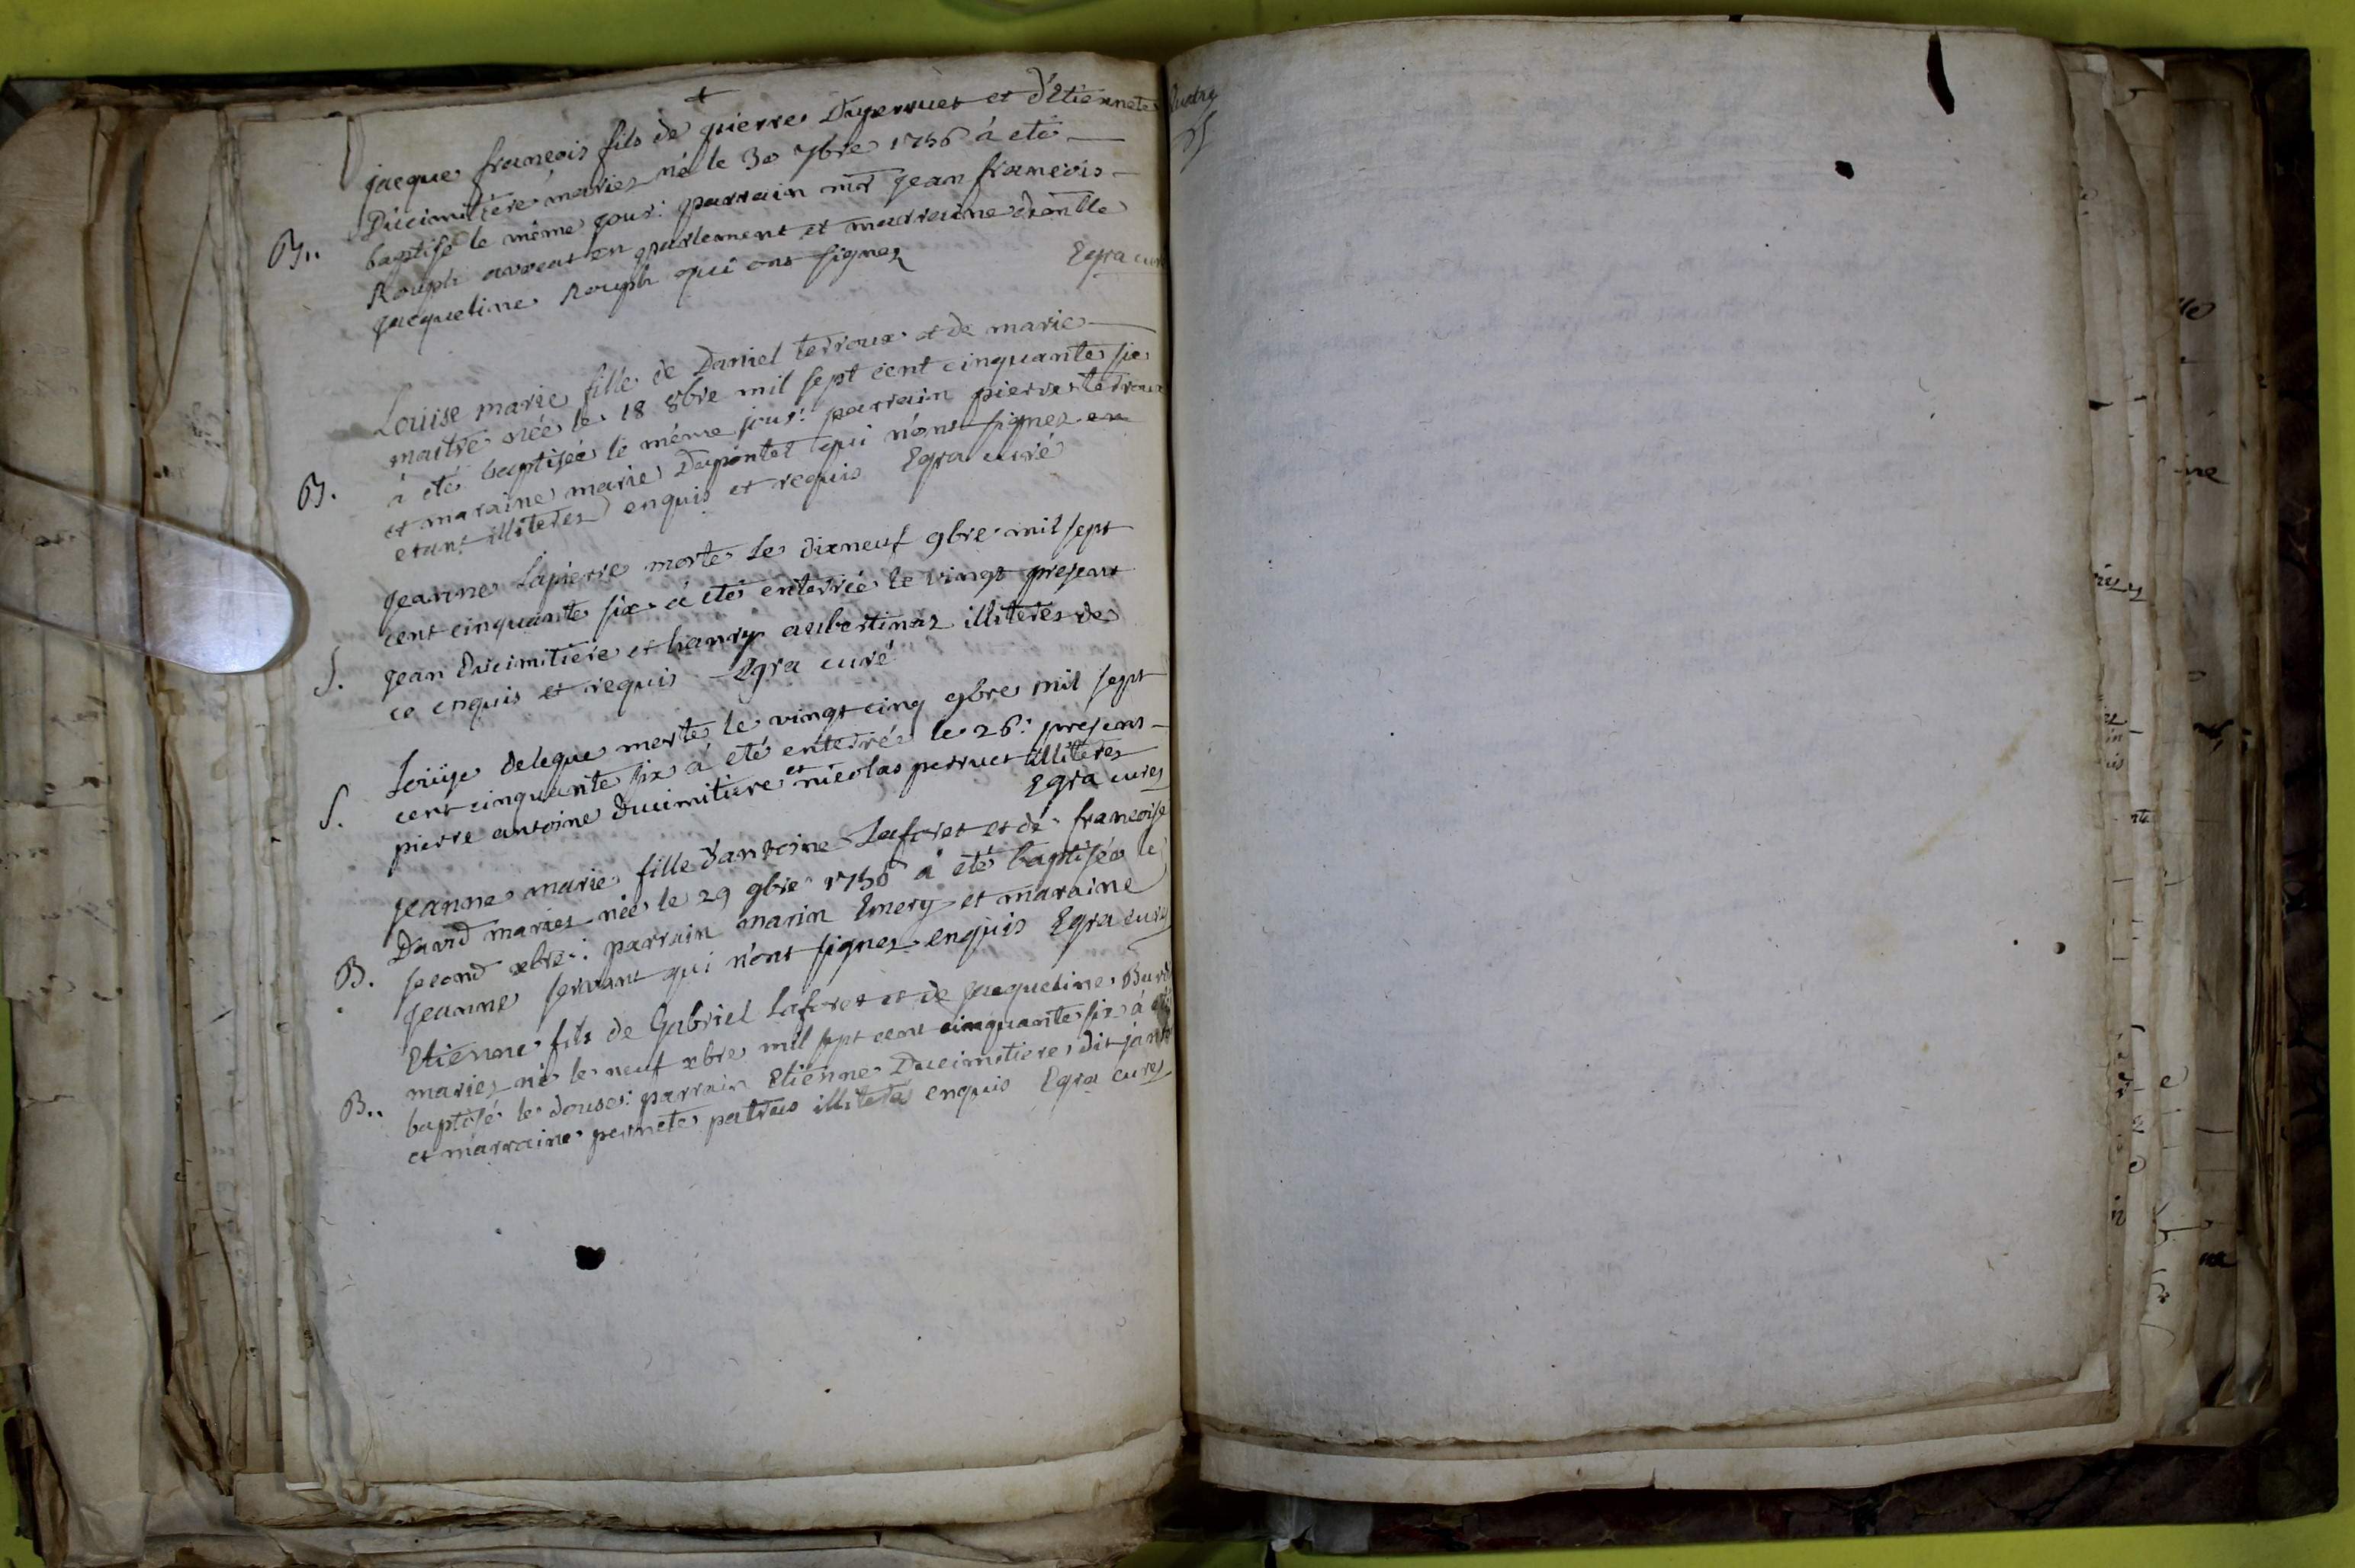 +
jacque françois fils de pierre Duperruet et d'Etiennete
Ducimitiere mariez né le 30 7bre 1756 à eté
B.. baptisé le même jour: parrain mr jean françois
Rouph avocat en parlement et marraine
jacqueline Rouph qui ont signez Egra curé
Louise marie fille de Daniel terroux et de marie
maitre née le 18 8bre mil sept cent cinquante six
à eté baptisée le même jour: parrain pierre terroux
B. et maraine marie Dupontet qui n'ont signez en
etant illiteres enquis et requis Egra curé
jeanne Lapierre morte Le dixneuf 9bre mil sept
cent cinquante six à eté enterrée le vingt present
S. jean Ducimitiere et hanry aubertinaz illiteres de
ce enquis et requis Egra curé
Loüise deleque morte le vingt cinq 9bre mil sept
cent cinquante six à eté enterrée le 26: present
S. pierre antoine Ducimitiere et nicolas perruet illiteres
Egra curez
jeanne marie fille d'antoine Laforet et de francoise
David mariez née le 29 9bre 1756 à eté baptisée le
B. second xbre: parrain marin Emery et maraine
jeanne servant qui n'ont signez enquis Egra curez
Etienne fils de Gabriel Laforet et de jacqueline
mariez né le neuf xbre mil sept cent cinquante six à eté
B.. baptisé le douse: parrain Etienne Ducimitiere dit
et marraine pernete patras illiteres enquis Egra curez